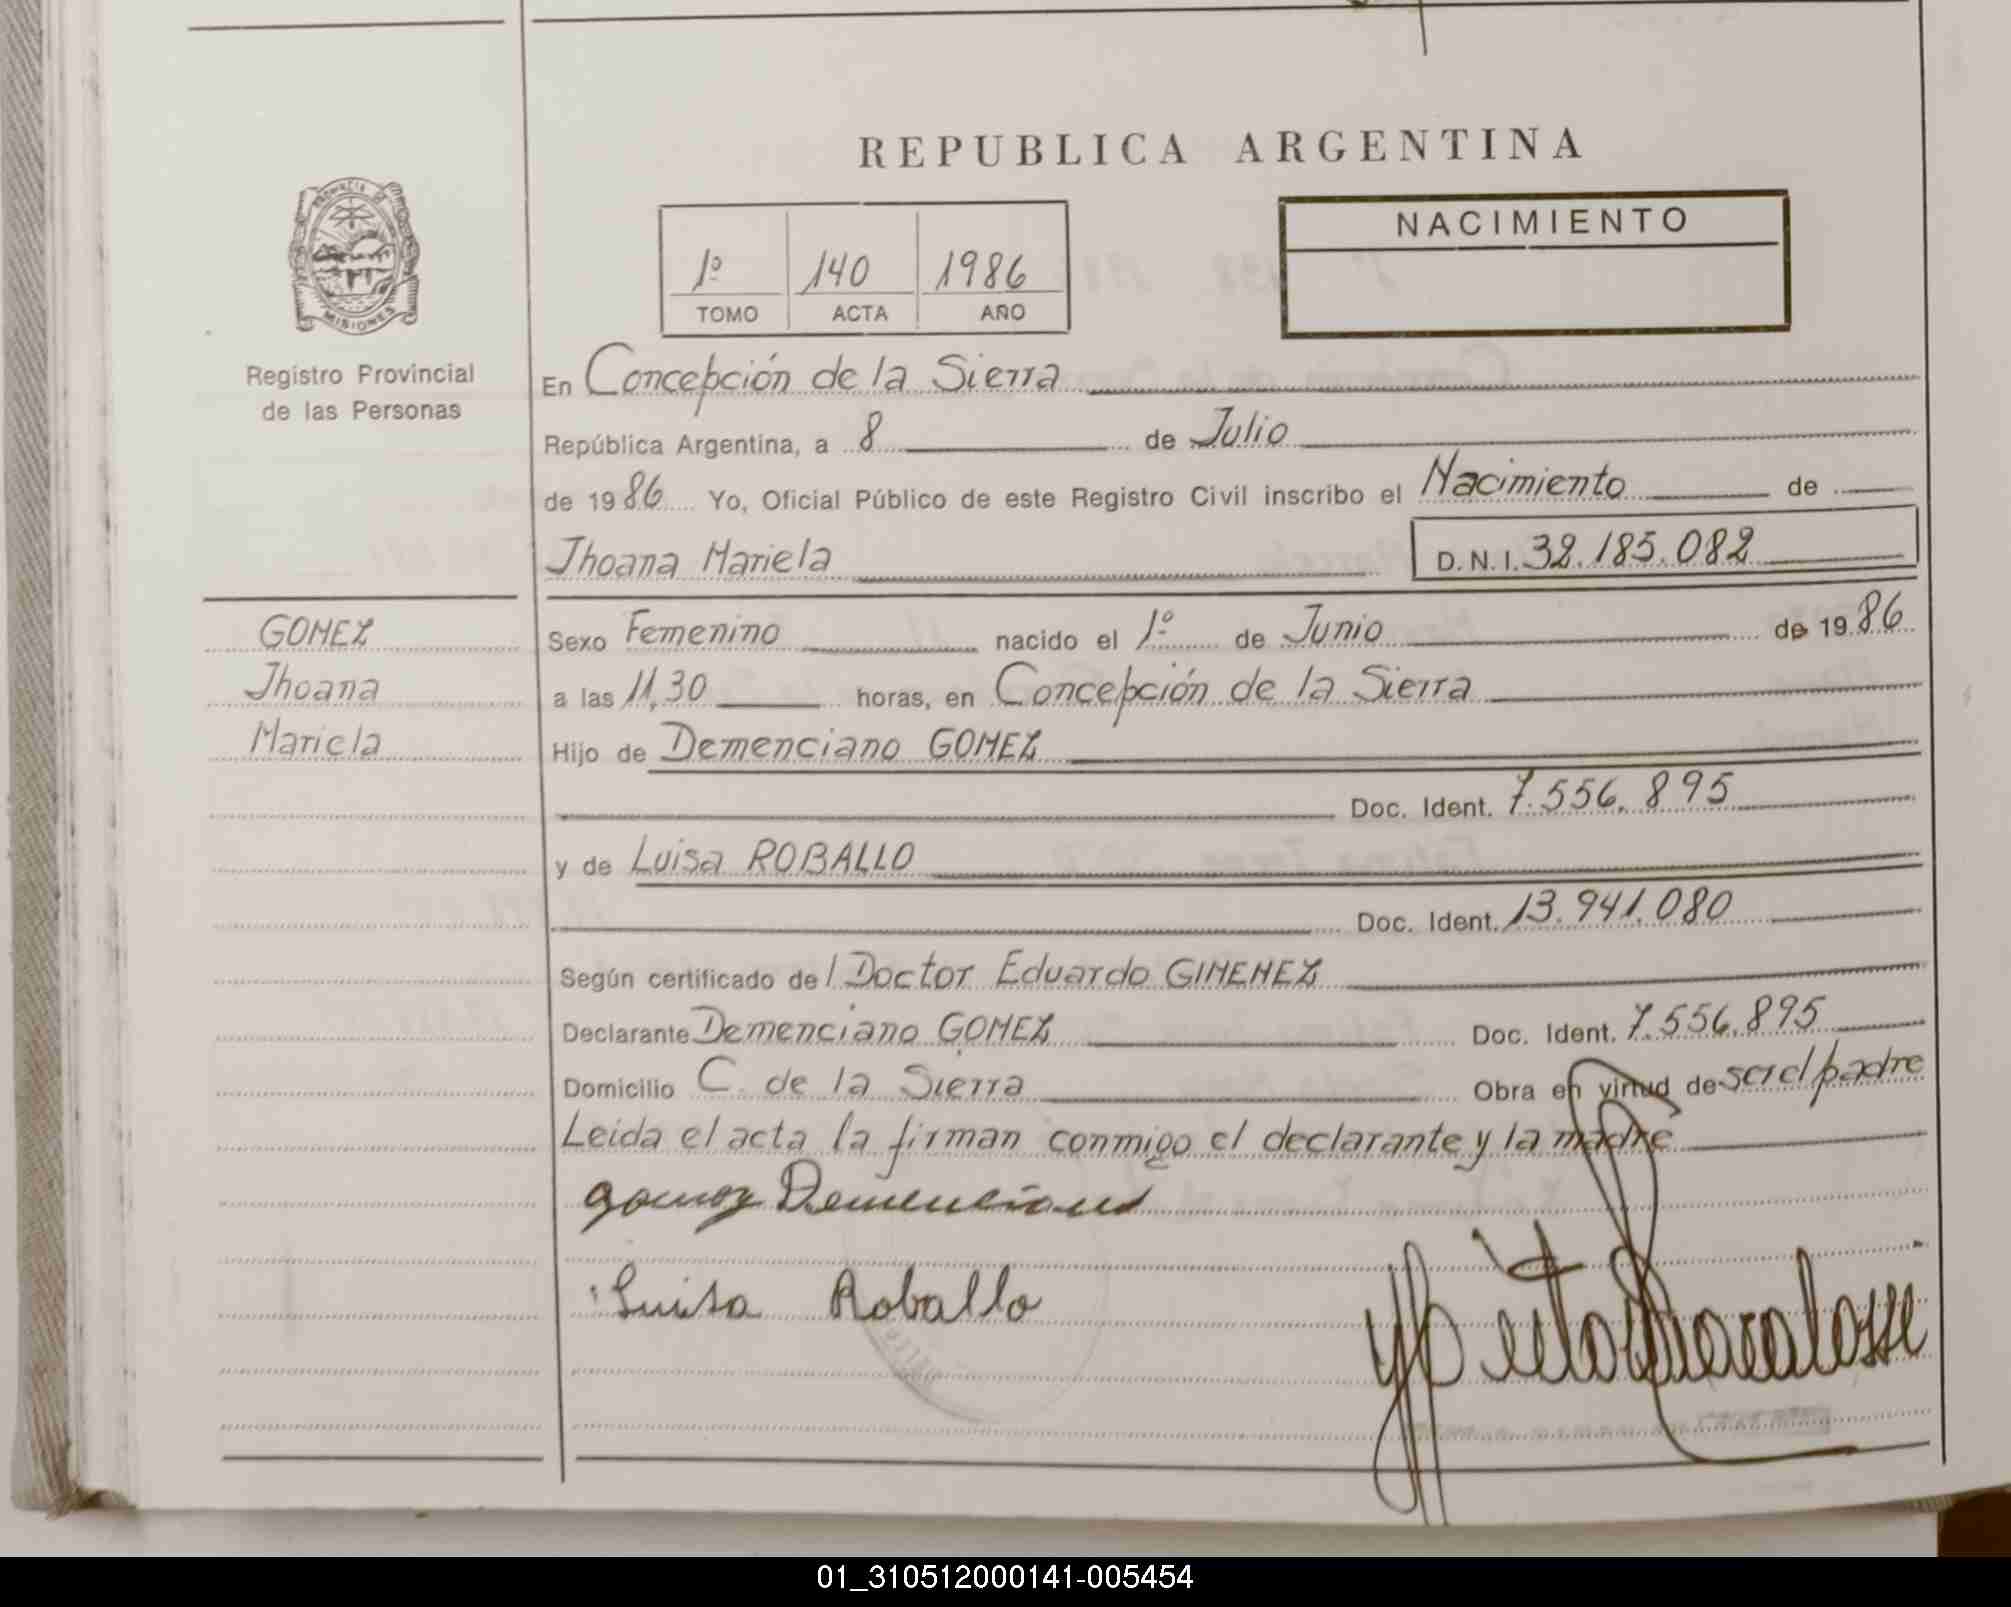 REPUBLICA ARGENTINA
PROVINCIA DE
MISIONES
Registro Provincial
de las Personas
1º 140 1986
TOMO ACTA AÑO
NACIMIENTO
En Concepción de la Sierra
República Argentina, a 8 de Julio
de 1986 Yo, Oficial Público de este Registro Civil inscribo el Nacimiento de
Jhoana Mariela D.N.I. 32.185.082
GOMEZ
Jhoana
Mariela
Sexo Femenino nacido el 1º de Junio de 1986
a las 11,30 horas, en Concepción de la Sierra
Hijo de Demenciano GOMEZ
Doc. Ident. 7.556.895
y de Luisa ROBALLO
Doc. Ident. 13.941.080
Según certificado del Doctor Eduardo GIMENEZ
Declarante Demenciano GOMEZ Doc. Ident. 7.556.895
Domicilio C. de la Sierra Obra en virtud de ser el padre
Leida el acta la firman conmigo el declarante y la madre
gomez Demenciano
Luisa Roballo
01_310512000141-005454